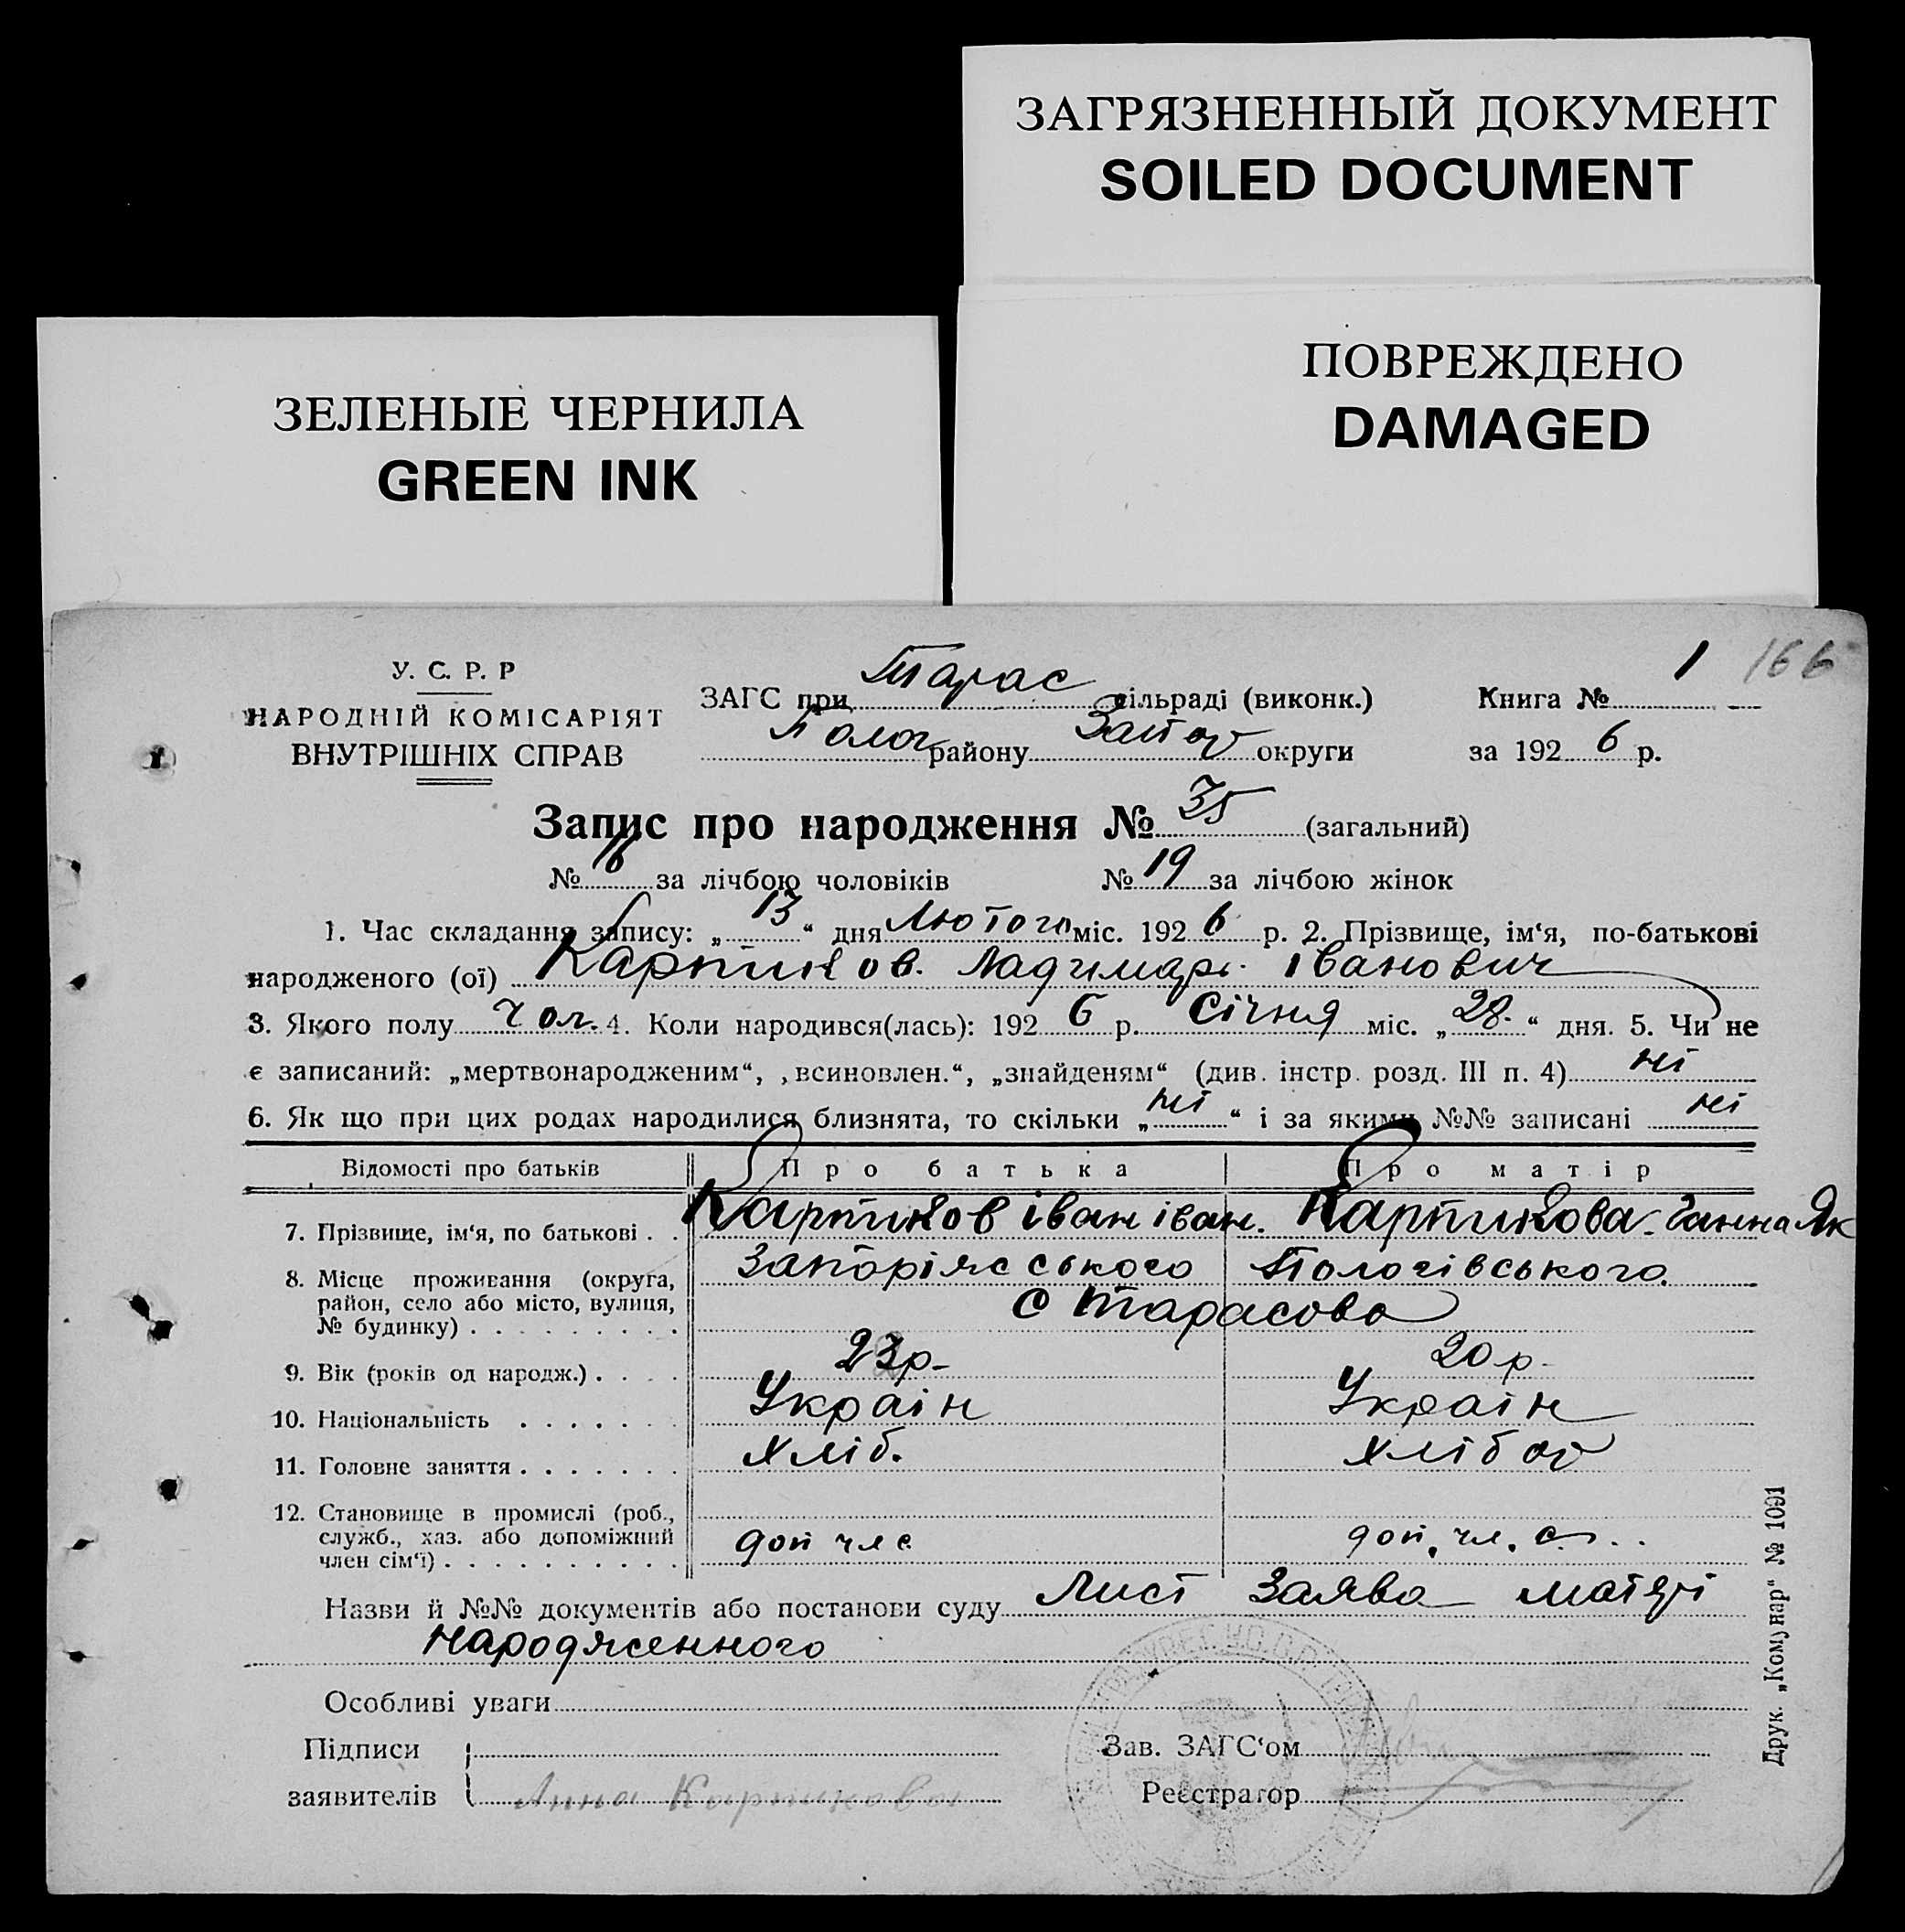 ЗАГРЯЗНЕННЫЙ ДОКУМЕНТ
SOILED DOCUMENT
ПОВРЕЖДЕНО
DAMAGED
ЗЕЛЕНЫЕ ЧЕРНИЛА
GREEN INK
1 166
У. С. Р. Р
НАРОДНІЙ КОМІСАРІЯТ
ВНУТРІШНІХ СПРАВ
ЗАГС при Тарас сільраді (виконк.) Книга №
Полог району Запор округи за 192 6 р.
Запис про народження № 35 (загальний)
№ 16 за лічбою чоловіків № 19 за лічбою жінок
1. Час складання запису: „ 13 “ дня Лютого міс. 192 6 р. 2. Прізвище, ім‘я, по-батькові
народженого (ої) Картиков. Ладимар. Іванович
3. Якого полу чол. 4. Коли народився(лась): 192 6 р. Січня міс. „ 28. “ дня. 5. Чи не
є записаний: „мертвонародженим“, „всиновлен.“, „знайденям“ (див. інстр. розд. III п. 4) ні
6. Як що при цих родах народилися близнята, то скільки „ ні “ і за якими №№ записані ні
Відомості про батьків Про батька Про матір
7. Прізвище, ім‘я, по батькові . . Картиков Іван Іван. Картикова Ганна Як
8. Місце проживання (округа, район, село або місто, вулиця, № будинку) . . . . . . . . . Запоріжського Пологівського
с Тарасово
9. Вік (років од народж.) . . . . 23р- 20 р-
10. Національність . . . . . . Украін Украін
11. Головне заняття . . . . . . . Хліб. Хлібор
12. Становище в промислі (роб., служб., хаз. або допоміжний член сім‘ї) . . . . . . . . . . доп чл с доп. чл. с. . .
Назви й №№ документів або постанови суду Лист Заява матері
народженного
Особливі уваги
Підписи Зав. ЗАГС‘ом
заявителів Анна Картикова Реєстратор
Друк. „Комунар“ № 1091